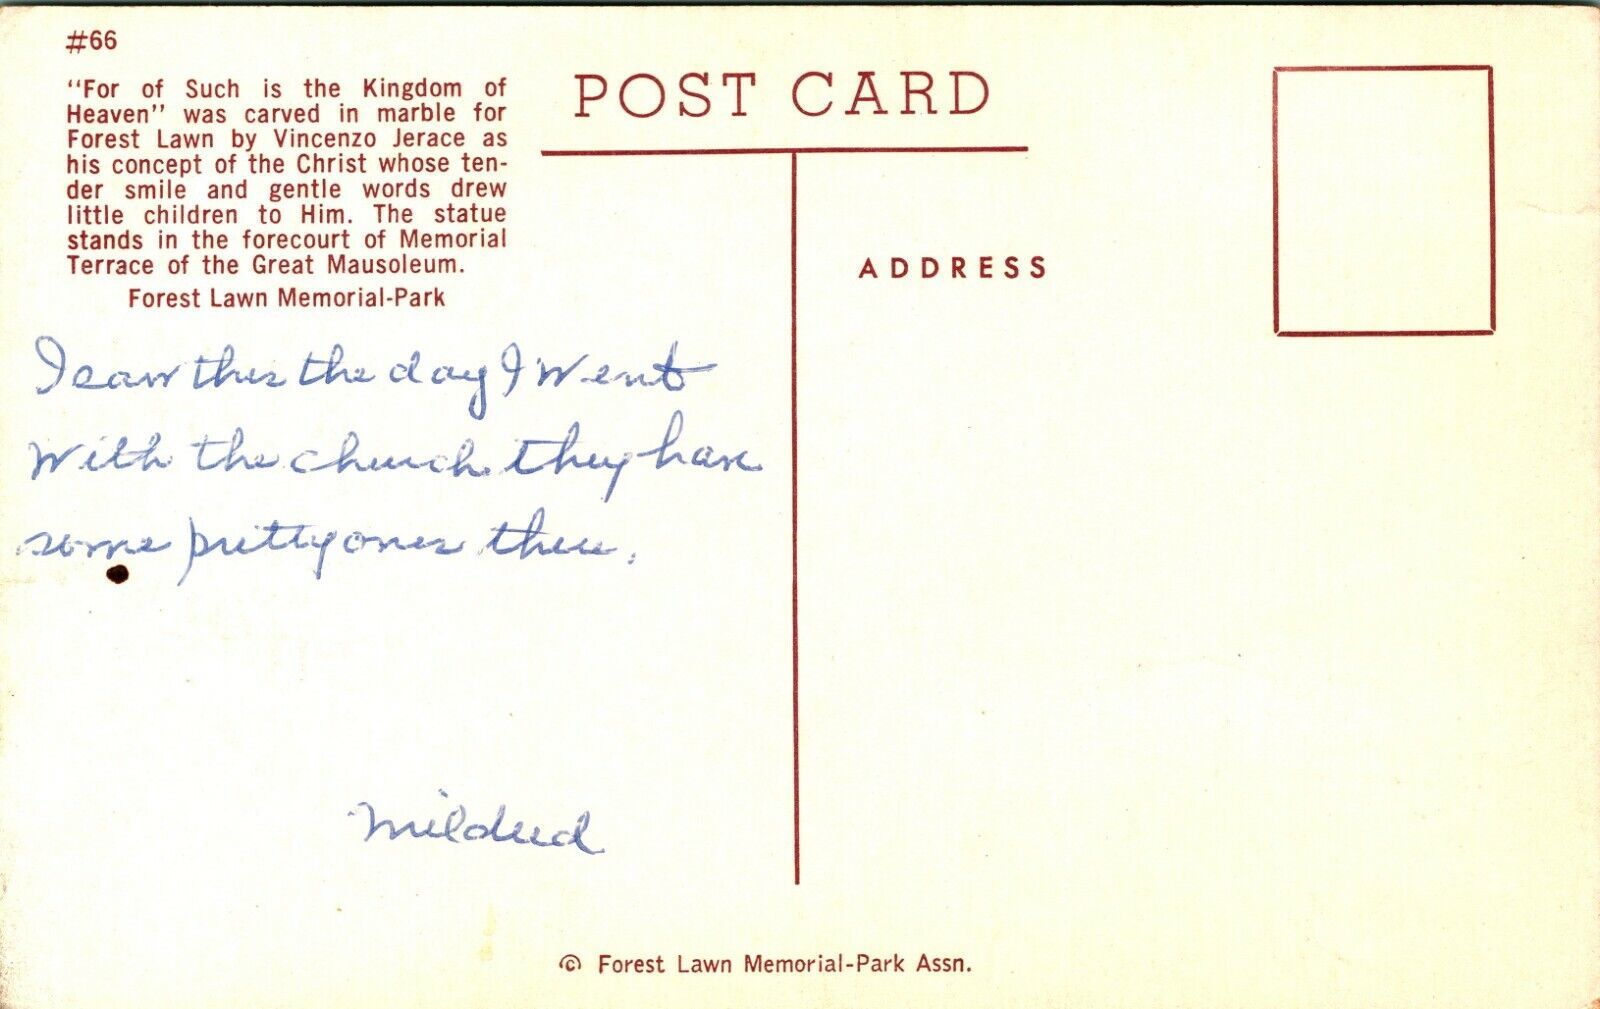 #66
"For of Such is the Kingdom of
Heaven" was carved in marble for
Forest Lawn by Vincenzo Jerace as
his concept of the Christ whose ten-
der smile and gentle words drew
little children to Him. The statue
stands in the forecourt of Memorial
Terrace of the Great Mausoleum.
Forest Lawn Memorial-Park
POST CARD
ADDRESS
I saw this the day I went
with the church. they have
some pretty ones there.
Mildred
© Forest Lawn Memorial-Park Assn.